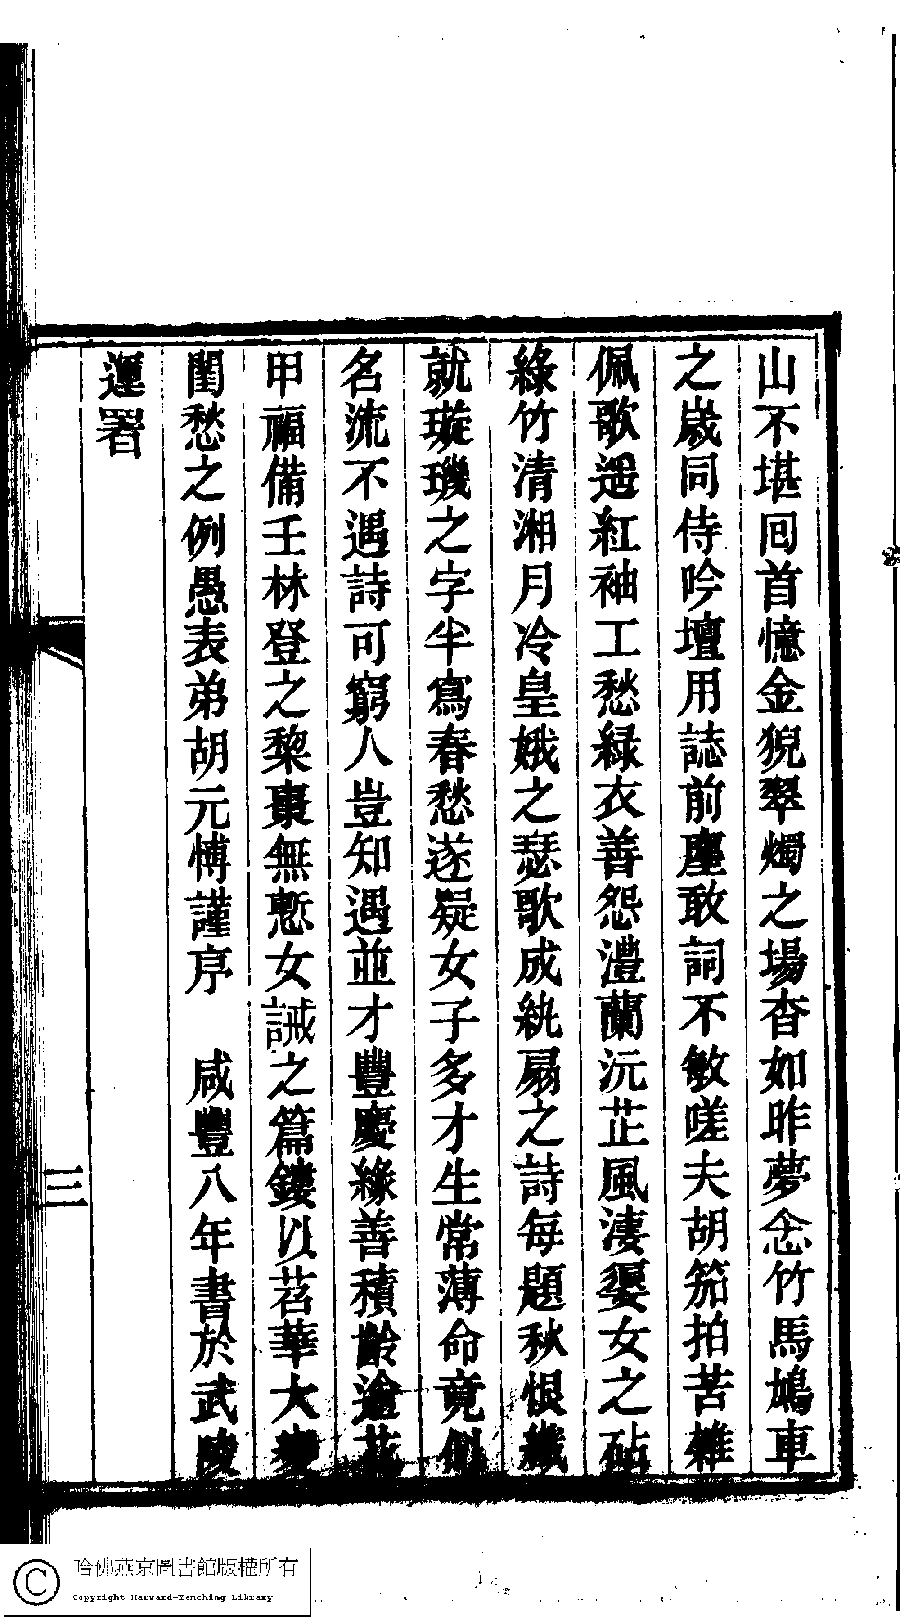 山不堪回首憶金猊翠燭之場杳如昨夢念竹馬鳩車
之歲同侍吟壇用誌前塵敢詞不敏嗟夫胡笳拍苦雜
佩歌遥紅袖工愁緑衣善怨澧蘭沅芷風淒嬃女之砧
綠竹清湘月冷皇娥之瑟歌成紈扇之詩每題秋恨織
就璇璣之字半寫春愁遂疑女子多才生常薄命竟似
名流不遇詩可窮人豈知遇並才豐慶緣善積齡逾花
甲福備壬林登之黎棗無慙女誡之篇鏤以苕華大變
閨愁之例愚表弟胡元博謹序　咸豐八年書於武陵
運署
三
哈佛燕京圖書館版權所有
Copyright Harvard-Yenching Library